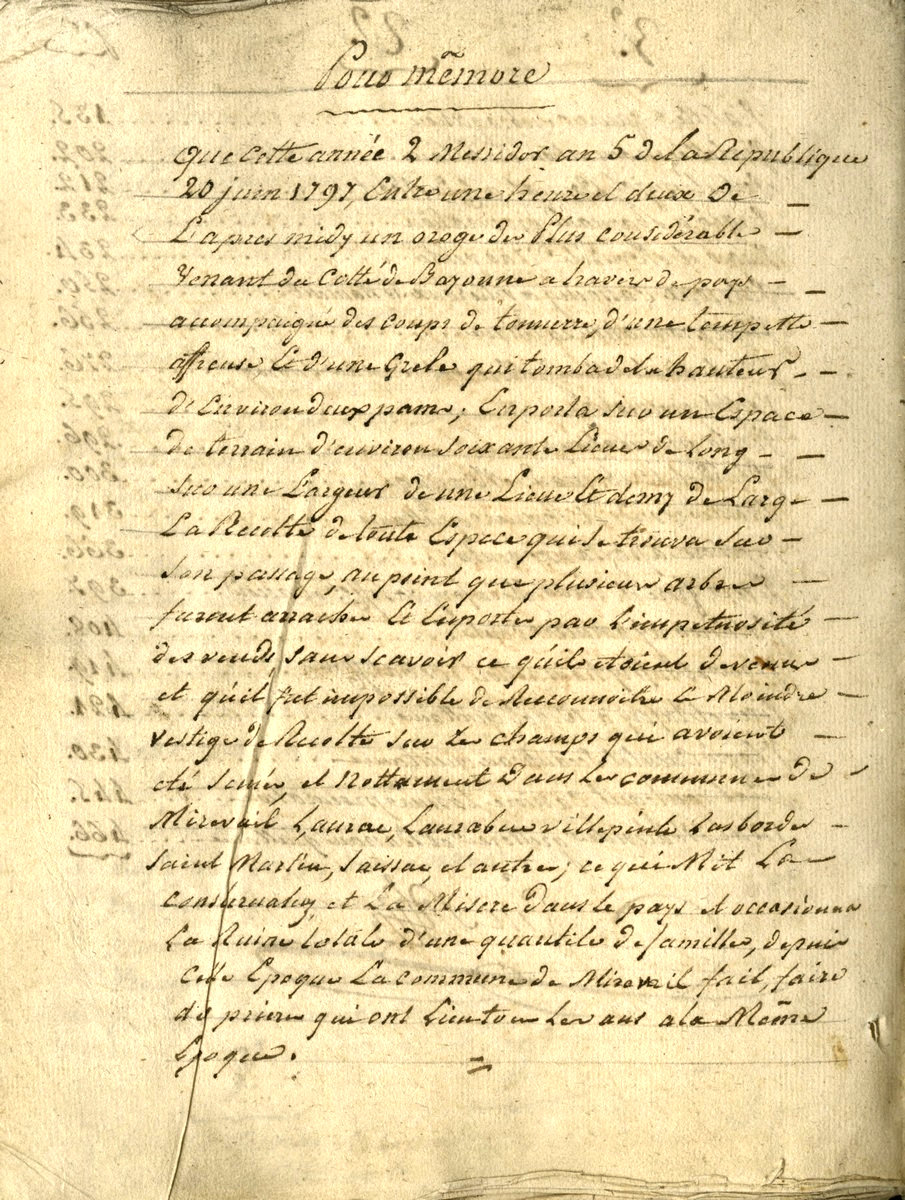 Pour mēmore
que Cette année 2 Messidor an 5 de la République
20 juin 1797, Entre une heure et deux De
L'apres midy un oroge de Plus considérable
Venant du Cotté de Bayonne a travers de pays
accompaigné des coups de tonnerre, d'une tempette
affreuse Et d'une Grele qui tomba de la hauteur
de Environ deux pams, Enporta sur un Espace
de terrain d'environ soixante Lieues de Long
sur une Largeur de une Lieue Et demy de Large
La Recolte de toute Espece qui se trouva sur
son passage, au point que plusieurs arbres
furent arraches Et Enportes par L'impetuosité
des vends sans scavoir ce quils etoient devenus
et qu'il fut impossible de Reconnoitre Le Moindre
vestige de Recolte sur Les champs qui avoient
été semés, et Nottament Dans Les communes de
Mirevail Laurac, Laurabuc villepinte Lasbordes
saint Martin, saissac, et autres; ce qui Mit La
et La Misere Dans le pays et occasionna
La Ruine totale d'une quantité de familles, depuis
Cette Epoque La commune de Mirevail fait, faire
des prieres qui ont Lieu tous Les ans a la Même
Epoque.